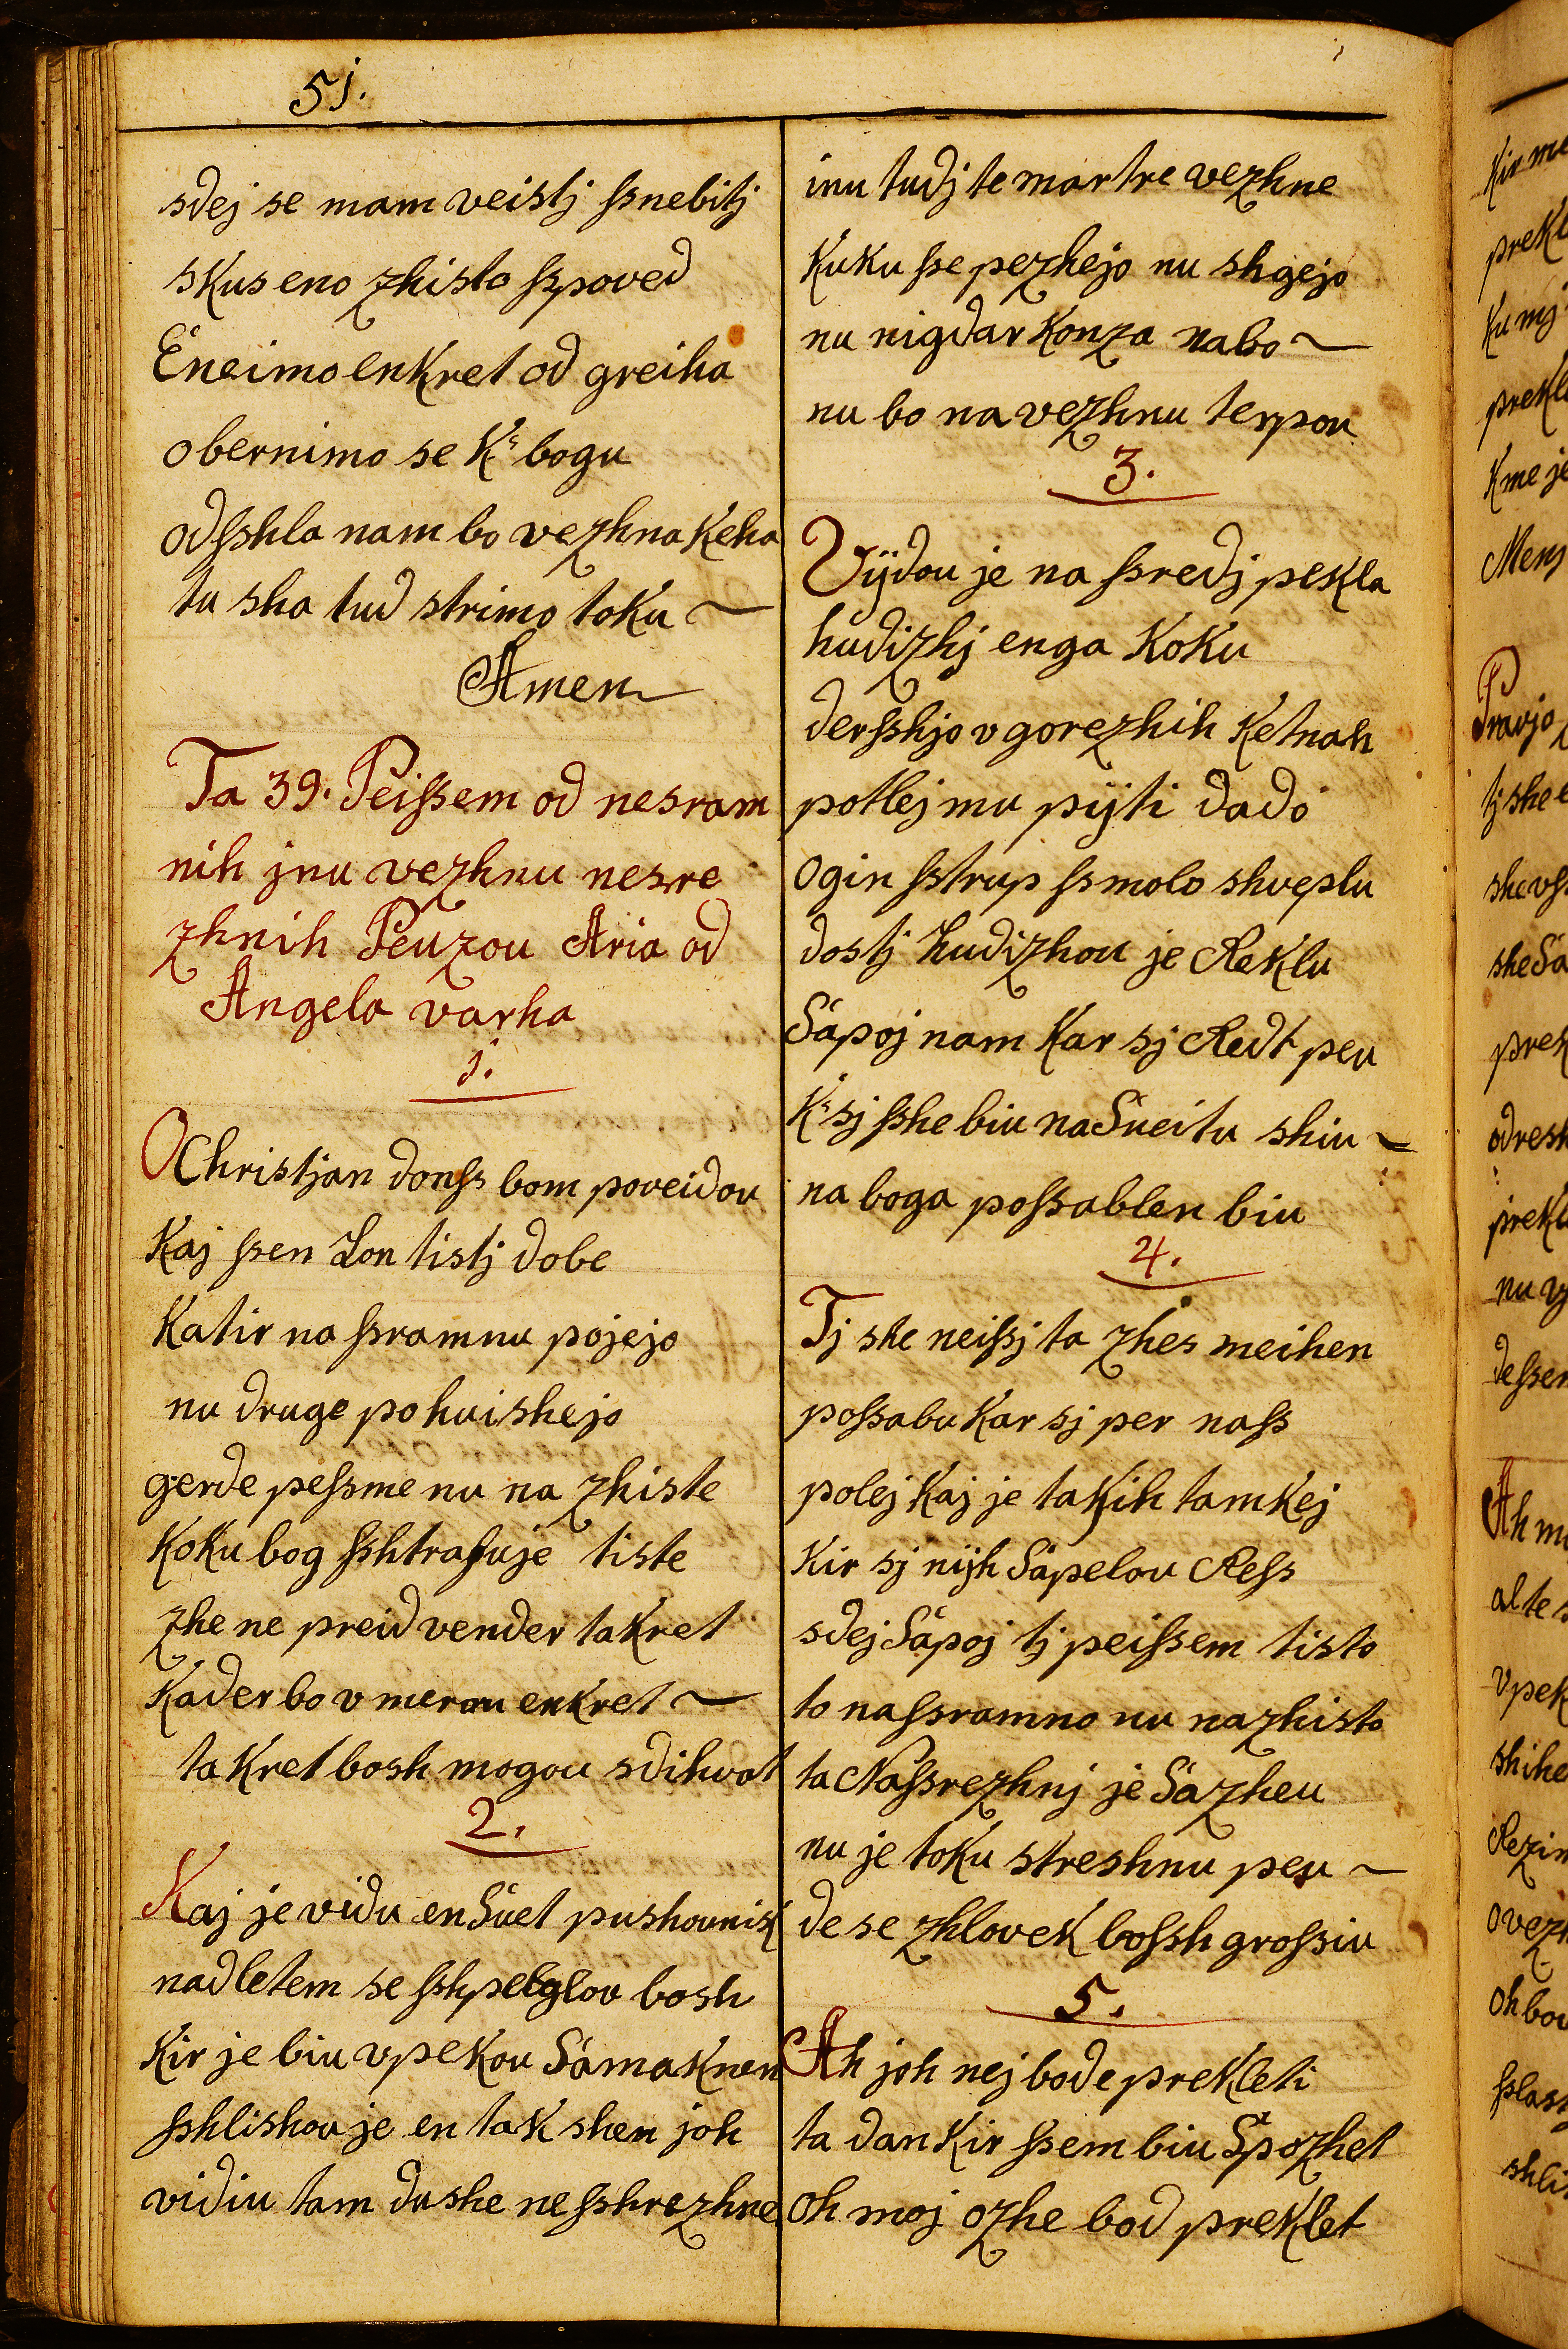 51.
sdej se mam veistj ſsnebitj
skus eno zhisto ſspoved
Eneimo enkret od greiha
obernimo se K' bogu
odſshla nam bo vezhna Keha
tu sha tud strimo toku ~
Amen
Ta 39. Peiſsem od nesram
nih jnu vezhnu nesre
zhnih Peuzou Aria od
Angela varha
1.
O Christjan donſs bom poveidou
Kaj ſsen Lon tistj dobe
Katir na ſsramnu pojejo
nu druge pohuishejo
gerde peſsme nu na zhiste
Koku bog ſshtrafuje tiste
zhe ne preid vender ta Kret
Kader bo v merou enkret ~
ta Kret bosh mogou sdihvat
2.
Kaj je vidu en Suet pushounik
nadletem se ſshpelglov bosh
Kir je biu vpekou Samaknen
ſshlishou je en takshen joh
vidiu tam dushe neſshrezhne
inu tudj te martre vezhne
Kuku ſse pezhejo nu shgejo
nu nigdar Konza nabo ~
nu bo na vezhnu terpou
3.
Vijdou je na ſsredj pekla
hudizhj enga Koku
derſshjo v gorezhih Ketnah
potlej mu pijti dado
ogin ſstrup ſsmolo shveplu
dostj hudizhou je Reklu
Sapoj nam Kar sj Redt peu
K' sj ſshe biu na Sueitu shiu ~
na boga poſsablen biu
4.
Tj she neiſsj ta zhes meihen
poſsabu Kar sj per naſs
polej Kaj je takih tamkej
Kir sj nijh Sapelou Reſs
sdej Sapoj tj peiſsem tisto
to naſsramno nu nazhisto
ta Naſsrezhnj je Sazheu
nu je toku streshnu peu ~
de se zhlovek boſsh groſsiu
5.
Ah joh nej bode prekleti
ta dan Kir ſsem biu Spozhet
oh moj ozhe bod preklet